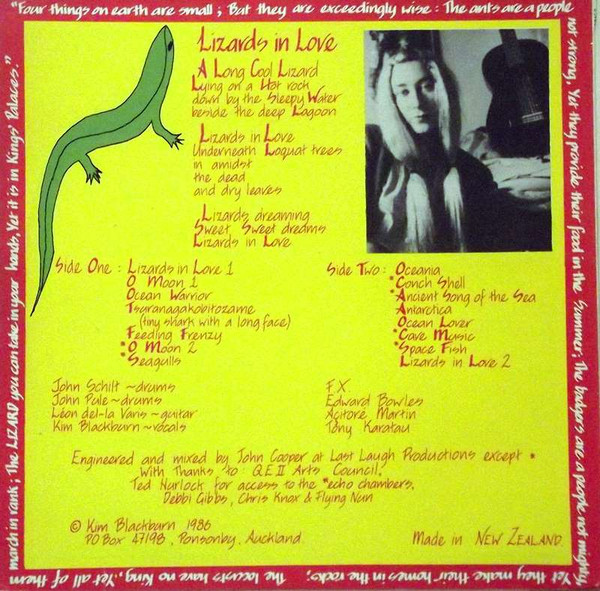 "Four things on earth are small; But they are exceedingly wise: The ants are a people
not strong, Yet they provide their food in the Summer; The badgers are a people not mighty
Yet they make their homes in the rocks; The locusts have no King, Yet all of them
march in rank; The LIZARD you can take in your hands, Yet it is in Kings' Palaces."
Lizards in Love
A Long Cool Lizard
Lying on a Hot rock
down by the Sleepy Water
beside the deep Lagoon
Lizards in Love
Underneath Loquat trees
in amidst
the dead
and dry leaves
Lizards dreaming
Sweet, Sweet dreams
Lizards in Love
Side One: Lizards in Love 1
O Moon 1
Ocean Warrior
Tsuranagakobitozame
(tiny shark with a long face)
Feeding Frenzy
*O Moon 2
*Seagulls
Side Two: Oceania
*Conch Shell
*Ancient Song of the Sea
Antarctica
Ocean Lover
*Cave Music
*Space Fish
Lizards in Love 2
John Schilt ~ drums
John Pule ~ drums
Léon del-la Varis ~ guitar
Kim Blackburn ~ vocals
F.X.
Edward Bowles
Martin
Tony Karatau
Engineered and mixed by John Cooper at Last Laugh Productions except *
With Thanks to Q.E.II Arts Council.
Ted Nurlock for access to the *echo chambers.
Debbi Gibbs, Chris Knox & Flying Nun
© Kim Blackburn 1986
PO Box 47198, Ponsonby, Auckland.
Made in NEW ZEALAND